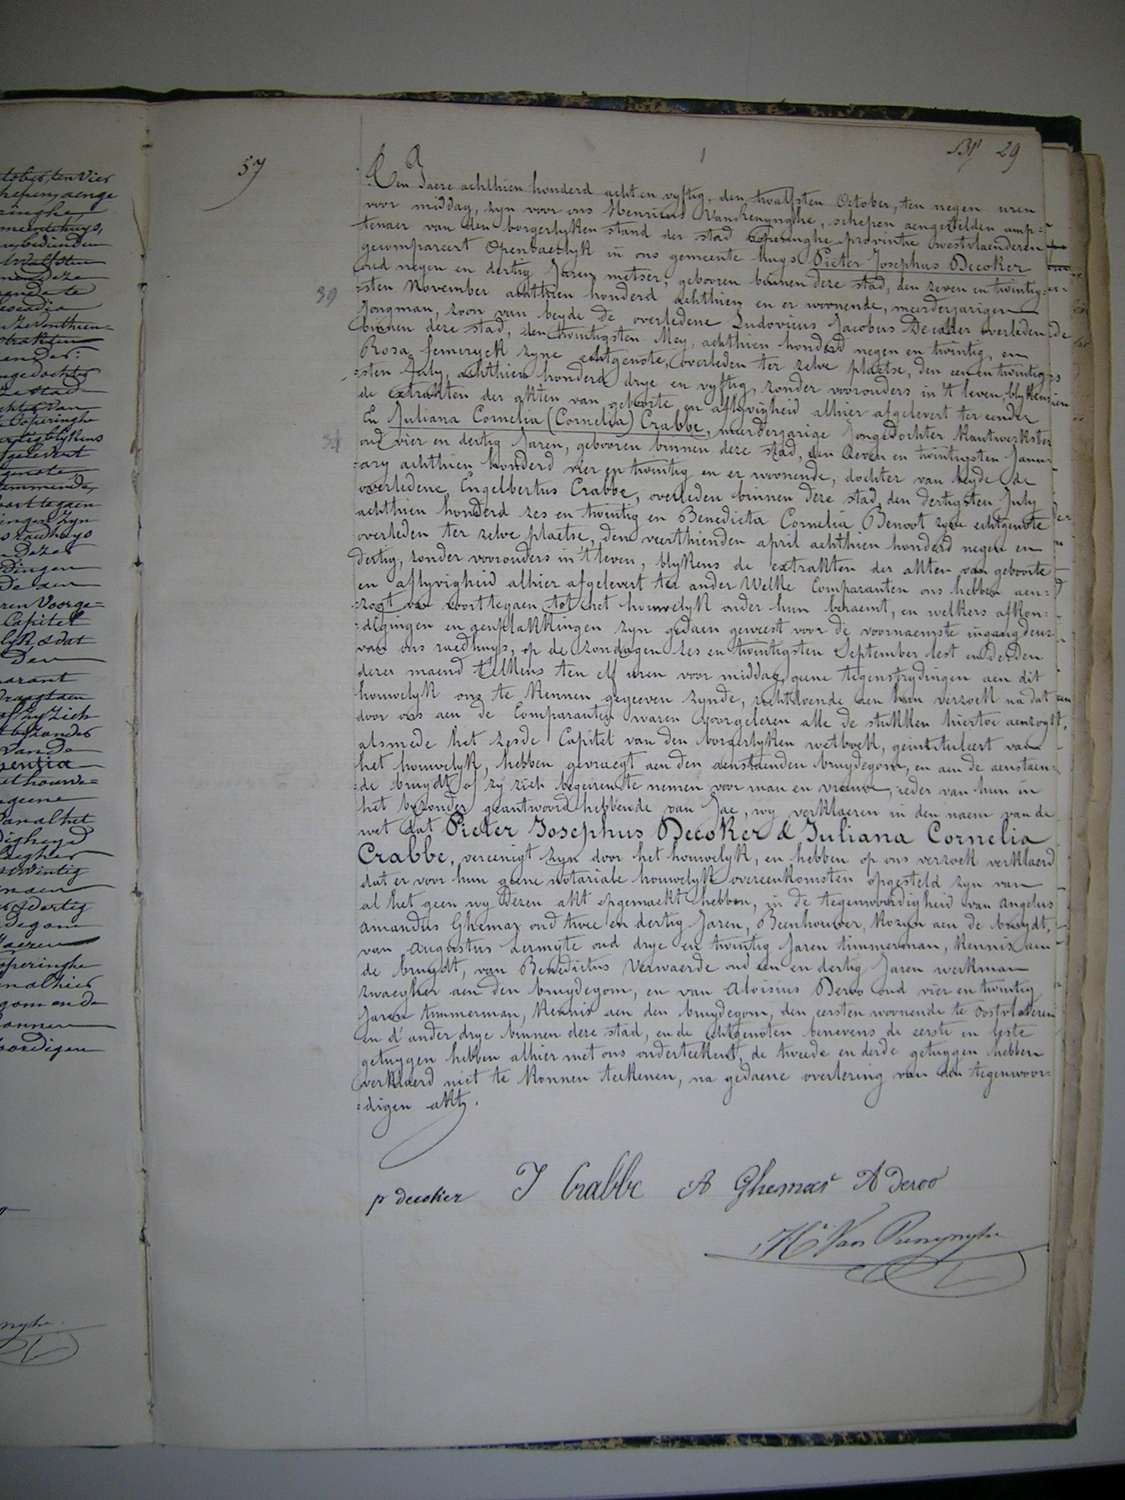 57
Bl 29
Ten Jaere achthien honderd acht en vyftig, den twalfsten October, ten negen uren
voor middag, zyn voor ons Henricus Vanrenynghe, schepen aengestelden amp-
tenaer van den borgerlyken stand der stad Poperinghe provintie Westvlaenderen
gecompareert Openbaerlyk in ons gemeente huys Pieter Josephus Decoker
oud negen en dertig Jaren, metser, gebooren binnen deze stad, den zeven en twintig-
39
sten November achthien honderd achthien en er woonende, meerderjarigen
Jongman, zoon van beyde de overledene Ludovicus Jacobus Decoker overleden
binnen deze stad, den twintigsten Mey, achthien honderd negen en twintig, en
Rosa femeryck zyne echtgenote, overleden ter zelve plaetse, den een en twintig-
sten July, achthien honderd drye en vyftig, zonder voorouders in 't leven, blykens
de extrakten der akten van geboorte en aflyvigheid alhier afgelevert ter eender
En Juliana Cornelia (Cornelia) Crabbe, meerderjarige Jongedochter Kantwerkster
34
oud vier en dertig Jaren, gebooren binnen deze stad, den zeven en twintigsten Janu-
ary achthien honderd vier en twintig en er woonende, dochter van beyde de
overledene Engelbertus Crabbe, overleden binnen deze stad, den dertigsten July
achthien honderd zes en twintig en Benedicta Cornelia Benoot zyne echtgenote
overleden ter zelve plaetse, den veerthienden april achthien honderd negen en
dertig, zonder voorouders in 't leven, blykens de extrakten der akten van geboorte
en aflyvigheid alhier afgelevert ter ander Welke Comparanten ons hebben aen-
zogt van voorttegaen tot het houwelyk onder hun beraemt, en welkers afkon-
digingen en aenplakkingen zyn gedaen geweest voor de voornaemste ingangdeur
van ons raedhuys, op de zondagen zes en twintigsten September lest en derden
dezer maend telkens ten elf uren voor middag, geene tegenstrydingen aen dit
houwelyk ons te Kennen gegeeven zynde, rechtdoende aen hun verzoek na dat
door ons aen de Comparanten waren voorgelezen alle de stukken hiertoe aenzogt,
alsmede het zesde Capitel van den borgerlyken wetboek, geintituleert van
het houwelyk, hebben gevraegt aen den aenstaenden bruydegom, en aen de aenstaen-
de bruydt of zy zich begeiren te nemen voor man en vrouwe, ieder van hun in
het byzonder geantwoord hebbende van Jae, wy verklaeren in den naem van de
wet dat Pieter Josephus Decoker & Juliana Cornelia
Crabbe, vereenigt zyn door het houwelyk, en hebben op ons verzoek verklaerd
dat er voor hun geene notariale houwelyk overeenkomsten opgesteld zyn van
al het geen wy dezen akt opgemaekt hebben, in de tegenwoordigheid van angelus
amandus Ghemar oud twee en dertig Jaren, Beenhouwer, Kozyn aen de bruydt,
van Augustus Lermyte oud drye en twintig Jaren timmerman, Kennis aen
de bruydt, van Benedictus Verwaerde oud een en dertig Jaren werkman
zwaegher aen den bruydegom, en van Aloisius Deroo oud vier en twintig
Jaren timmerman, Kennis aen den bruydegom, den eersten woonende te oostvleteren
en d'ander drye binnen deze stad, en de echtgenoten benevens de eerste en leste
getuygen hebben alhier met ons onderteekent, de tweede en derde getuygen hebben
verklaerd niet te konnen teekenen, na gedaene overlezing van den tegenwoor-
digen akt.
p decoker J Crabbe A Ghemar A Deroo
H. Van Renynghe